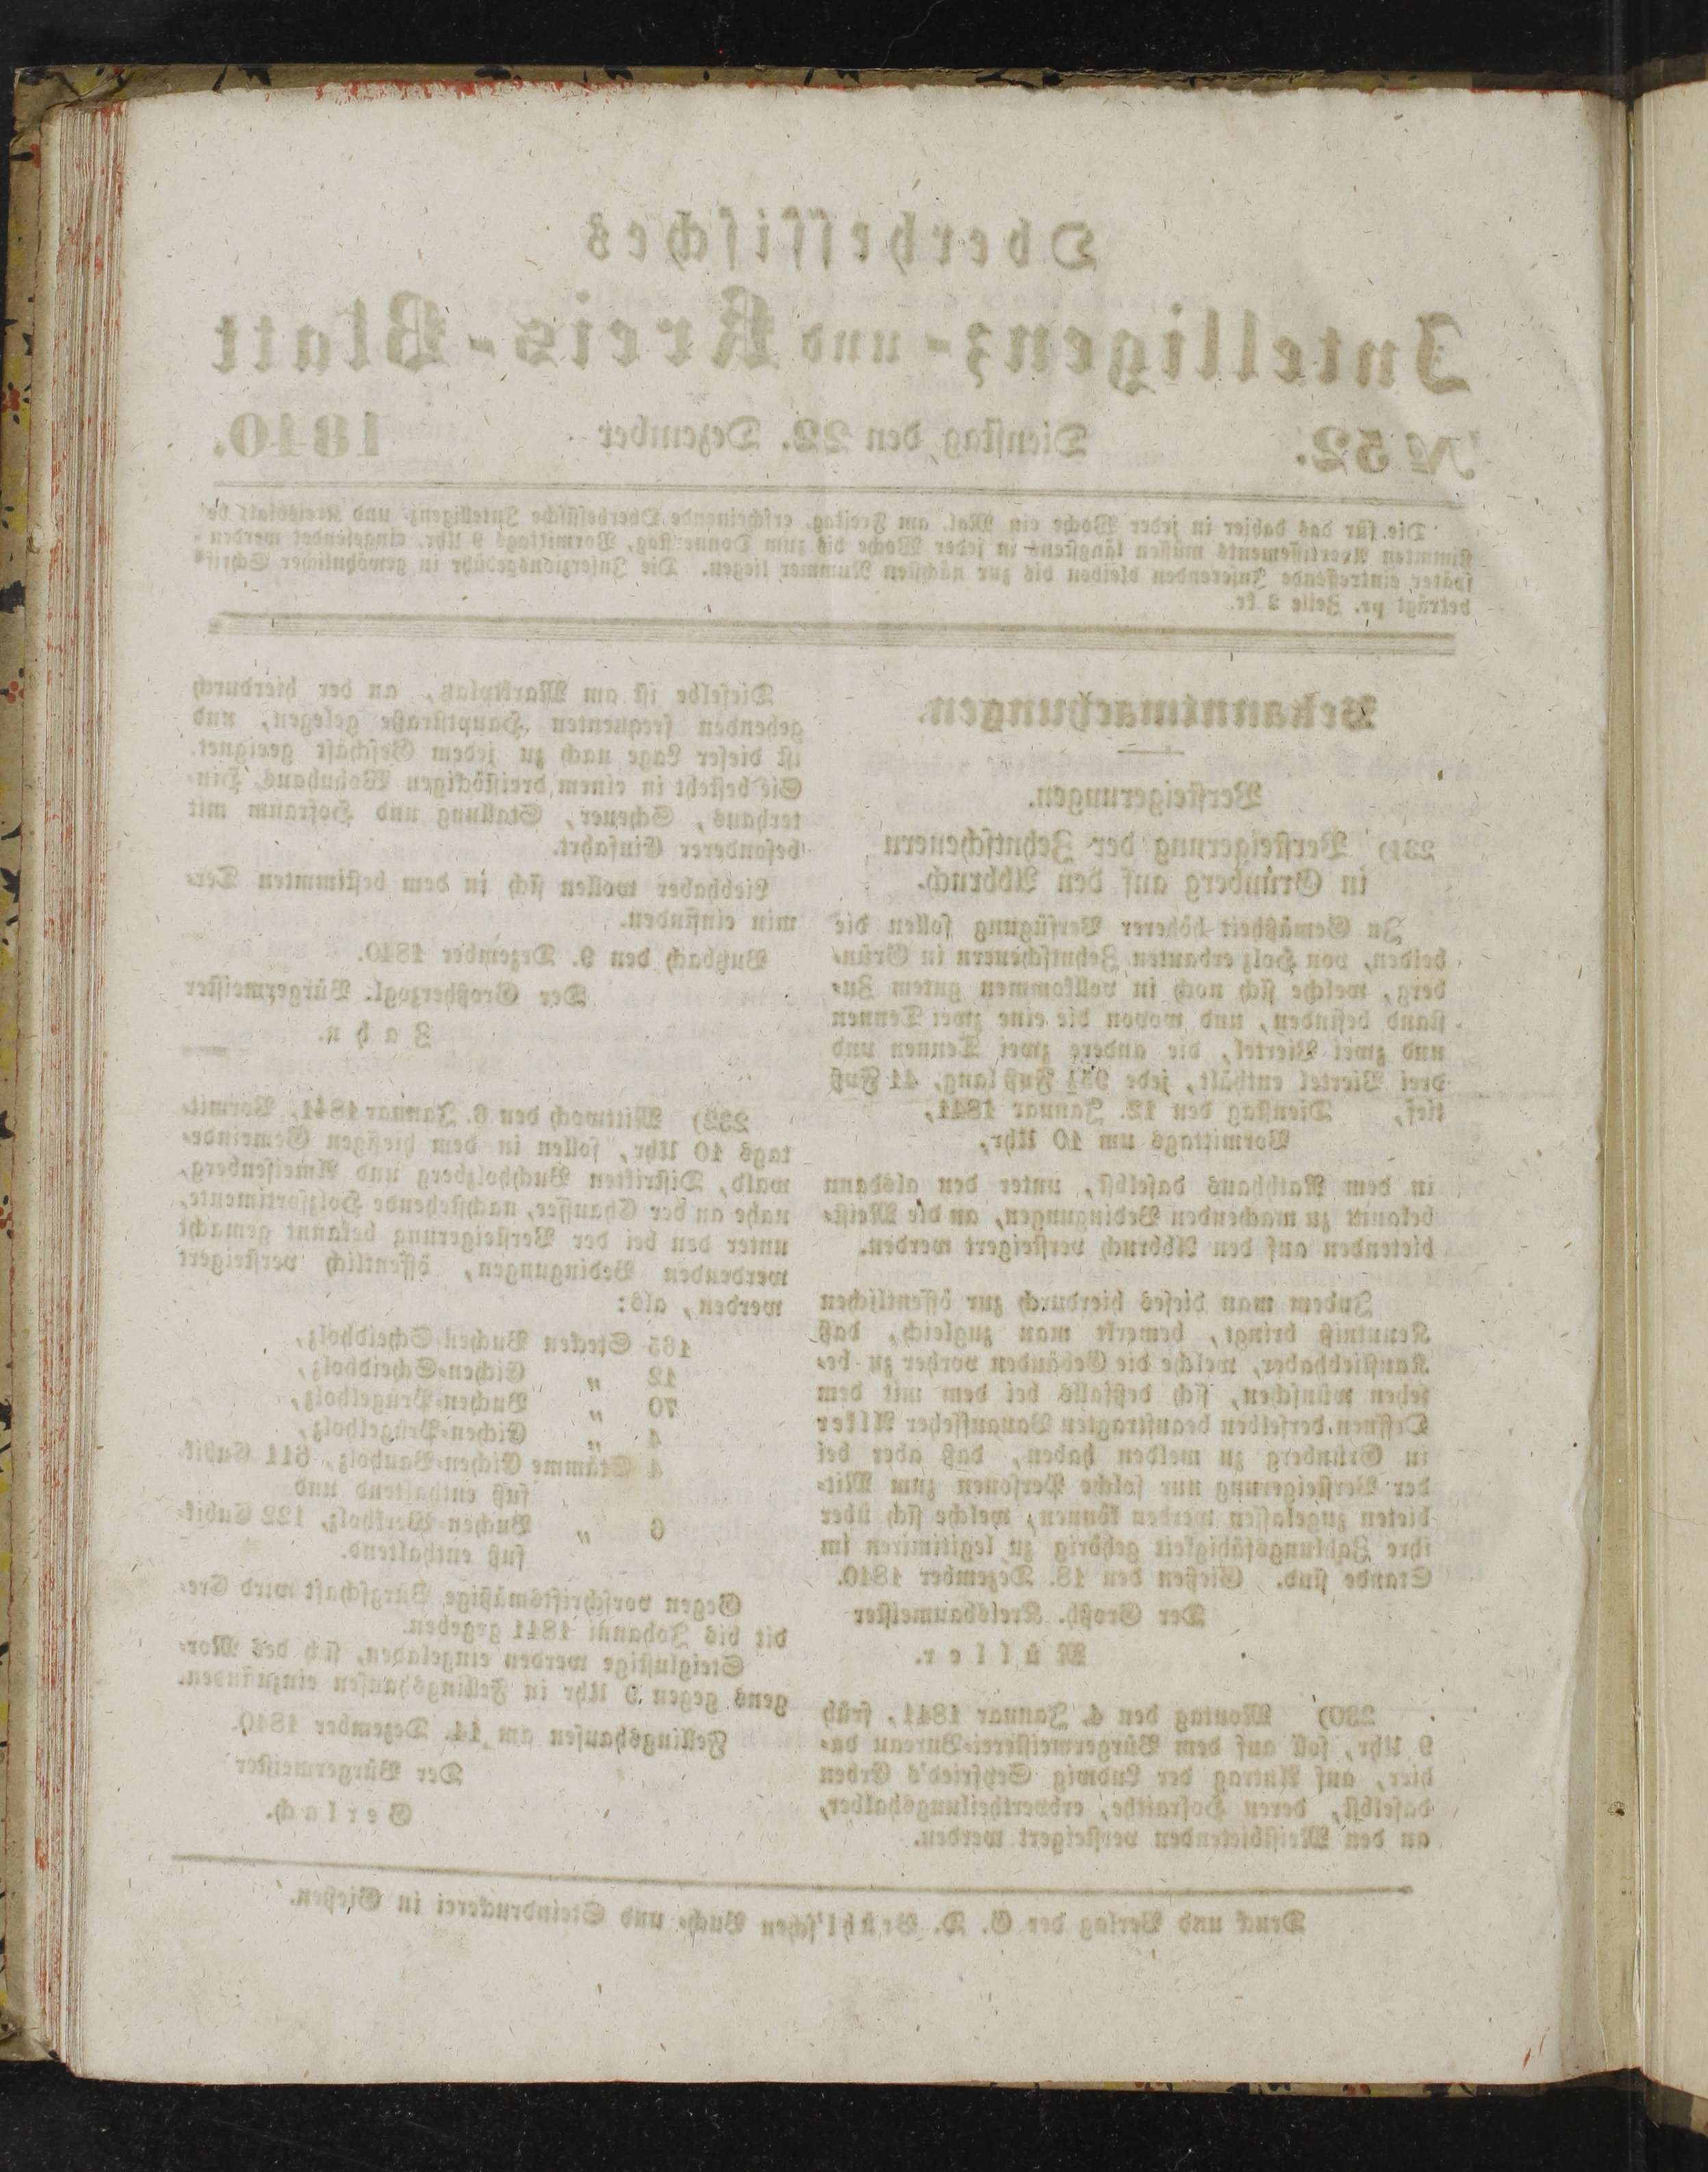 Oberhessisches
Intelligenz- und Kreis-Blatt
№ 52. Dienstag den 22. Dezember 1840.
Die für das dahier in jeder Woche ein Mal, am Freitag, erscheinende Oberhessische Intelligenz- und Kreisblatt be-
stimmten Avertissements müssen längstens in jeder Woche bis zum Donnerstag, Vormittags 9 Uhr, eingesendet werden -
später eintreffende Inserenden bleiben bis zur nächsten Nummer liegen. Die Inserzionsgebühr in gewöhnlicher Schrift
beträgt pr. Zeile 3 kr.
Bekanntmachungen.
Versteigerungen.
231) Versteigerung der Zehntscheuern
in Grünberg auf den Abbruch.
In Gemäßheit höherer Verfügung sollen die
beiden, von Holz erbauten Zehntscheuern in Grün-
berg, welche sich noch in vollkommen gutem Zu-
stand befinden, und wovon die eine zwei Tennen
und zwei Viertel, die andere zwei Tennen und
drei Viertel enthält, jede 95½ Fuß lang, 41 Fuß
tief, Dienstag den 12. Januar 1841,
Vormittags um 10 Uhr,
in dem Rathhaus daselbst, unter den alsdann
bekannt zu machenden Bedingungen, an die Meist-
bietenden auf den Abbruch versteigert werden.
Indem man dieses hierdurch zur öffentlichen
Kenntniß bringt, bemerkt man zugleich, daß
Kaufliebhaber, welche die Gebäuden vorher zu be-
sehen wünschen, sich deßfalls bei dem mit dem
Oeffnen derselben beauftragten Bauaufseher Alter
in Grünberg zu melden haben, daß aber bei
der Versteigerung nur solche Personen zum Mit-
bieten zugelassen werden können, welche sich über
ihre Zahlungsfähigkeit gehörig zu legitimiren im
Stande sind. Gießen den 18. Dezember 1840.
Der Großh. Kreisbaumeister
Müller.
230) Montag den 4. Januar 1841, früh
9 Uhr, soll auf dem Bürgermeisterei-Bureau da-
hier, auf Antrag der Ludwig Seyfried's Erben
daselbst, deren Hofraithe, erbvertheilungshalber,
an den Meistbietenden versteigert werden.
Dieselbe ist am Marktplatz, an der hierdurch
gehenden frequenten Hauptstraße gelegen, und
ist dieser Lage nach zu jedem Geschäft geeignet.
Sie besteht in einem dreistöckigen Wohnhaus, Hin-
terhaus, Scheuer, Stallung und Hofraum mit
besonderer Einfahrt.
Liebhaber wollen sich in dem bestimmten Ter-
min einfinden.
Butzbach den 9. Dezember 1840.
Der Großherzogl. Bürgermeister
Jahn.
232) Mittwoch den 6. Januar 1841, Vormit-
tags 10 Uhr, sollen in dem hiesigen Gemeinde-
wald, Distrikten Buchholzberg und Ameisenberg,
nahe an der Chaussee, nachstehende Holzsortimente,
unter den bei der Versteigerung bekannt gemacht
werdenden Bedingungen, öffentlich versteigert
werden, als:
165 Stecken Buchen-Scheidholz,
12 „ Eichen-Scheidholz,
70 „ Buchen-Prügelholz,
4 „ Eichen-Prügelholz,
4 Stämme Eichen-Bauholz, 611 Cubik-
fuß enthaltend und
6 „ Buchen-Werkholz, 122 Cubik-
fuß enthaltend.
Gegen vorschriftsmäßige Bürgschaft wird Cre-
dit bis Johanni 1841 gegeben.
Steiglustige werden eingeladen, sich des Mor-
gens gegen 9 Uhr in Fellingshausen einzufinden.
Fellingshausen am 14. Dezember 1840.
Der Bürgermeister
Gerlach.
Druck und Verlag der G. D. Brühl'schen Buch- und Steindruckerei in Gießen.